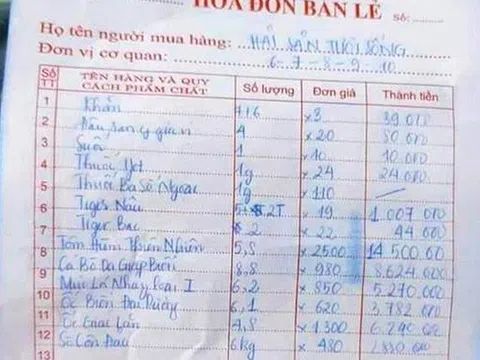 HÓA ĐƠN BÁN LẺ Số:
Họ tên người mua hàng: HẢI SẢN TƯƠI SỐNG
Đơn vị cơ quan: 6-7-8-9-10
Số TT TÊN HÀNG VÀ QUY CÁCH PHẨM CHẤT Số lượng Đơn giá Thành tiền
1 Khăn 7+6 x3 39.000
2 4 x20 80.000
3 Suối 1 x10 10.000
4 Thuốc Jet 1g x24 24.000
5 Thuốc Ba Số Ngoại 1g x110
6 Tiger Nâu x19 1.007.000
7 Tiger Bạc 2 x22 44.000
8 Tôm Hùm Thiên Nhiên 5,8 x2500 14.500.00
9 Cá Bò Da Giáp Biển 8,8 x980 8.624.000
10 Mực Lá Nháy Loại I 6,2 x850 5.270.000
11 Ốc Biển Đại Dương 6,1 x620 3.782.000
12 Ốc 4,8 x1300 6.240.000
13 Sò Côn Đảo 6kg x480 2.880.000